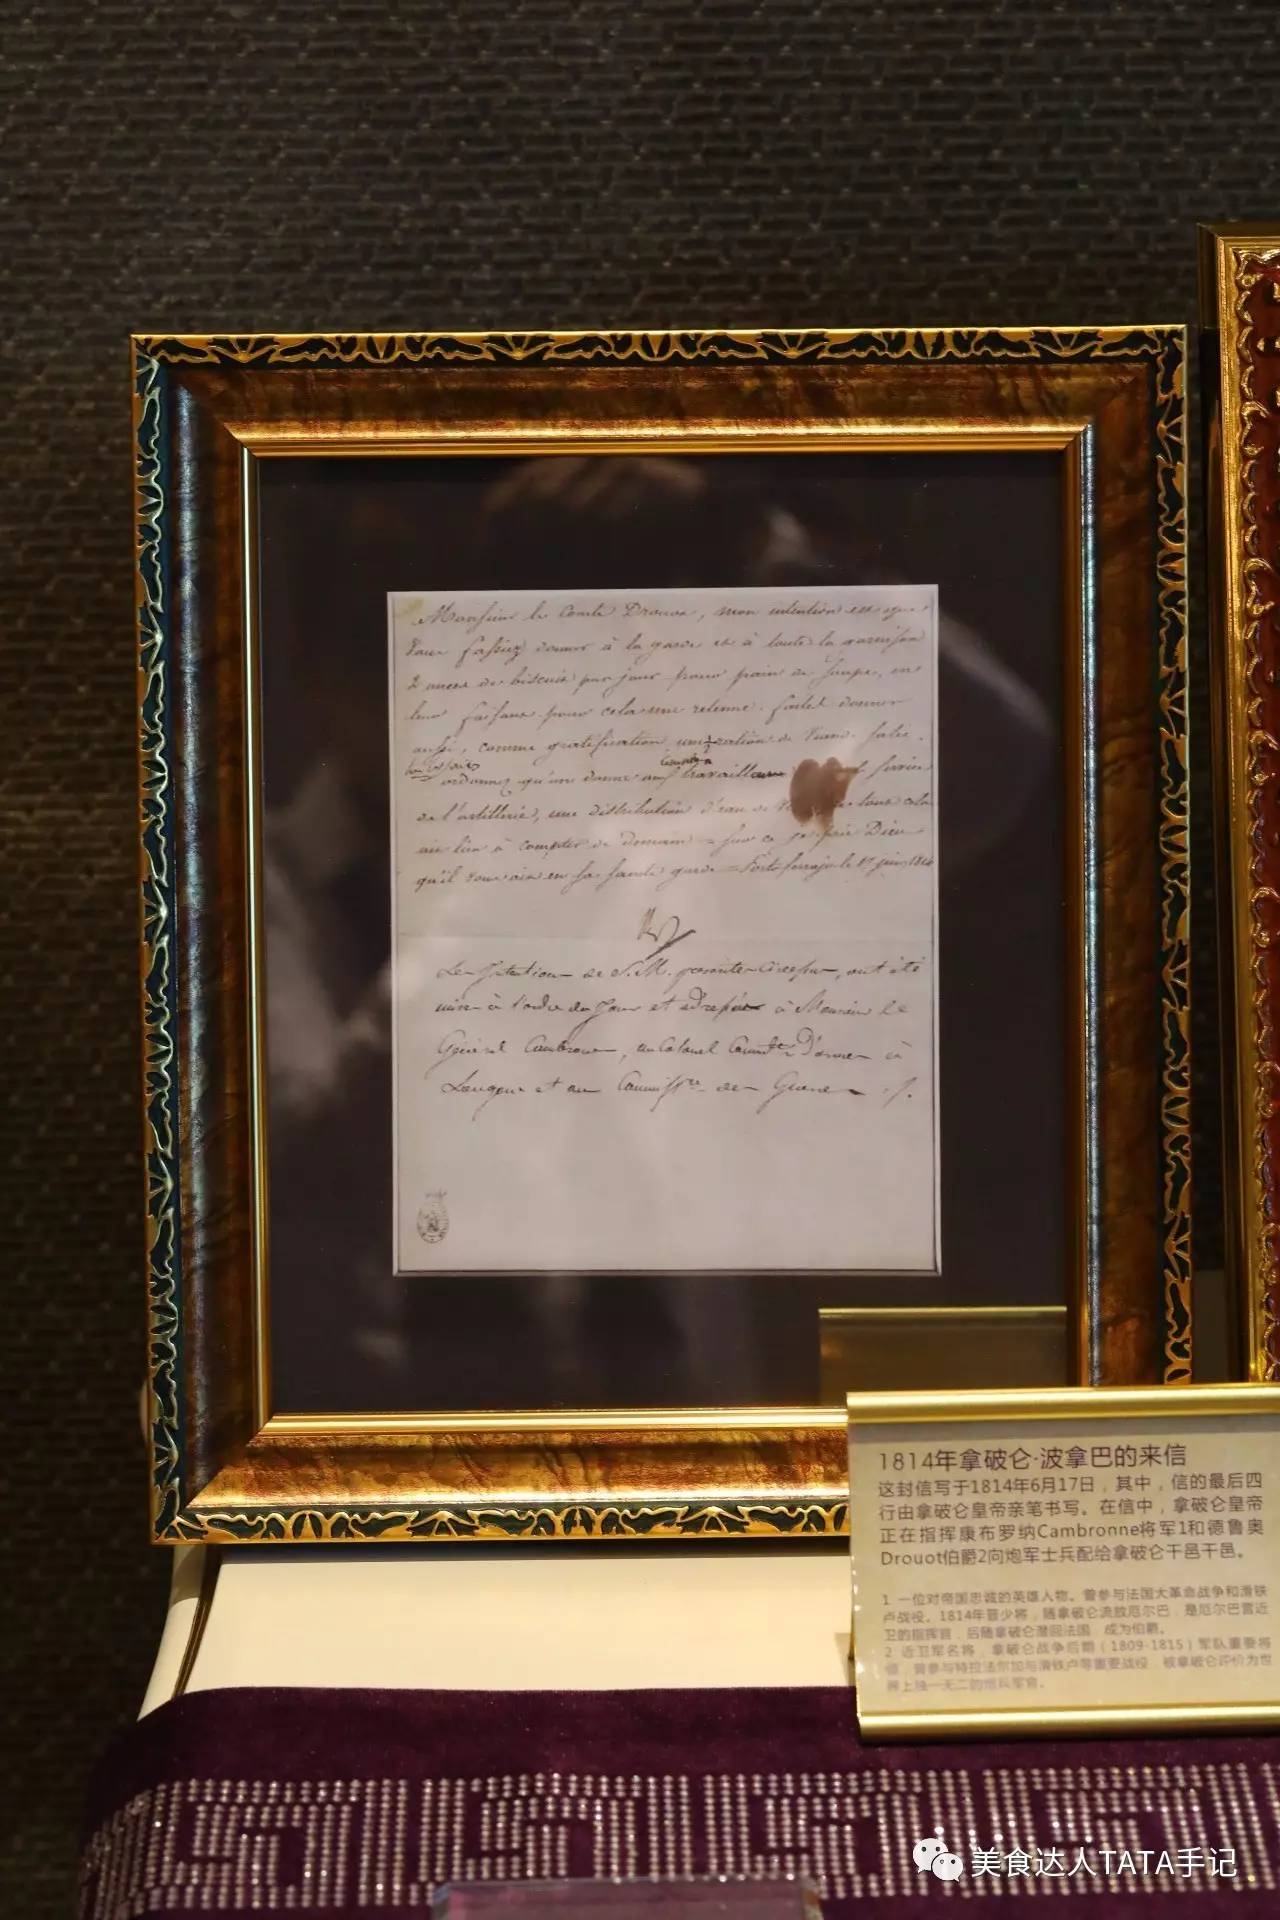 Monsieur le Comte Drouot, mon intention est que
vous fassiez donner à la garde et à toute la garnison
2 onces de biscuit par jour pour pain de soupe, en
leur faisant pour cela une retenue. faites donner
aussi, comme gratification, une ration de viande salée.
ordonnez qu'on donne aux travailleurs service
de l'artillerie, une distribution d'eau de tout cela
aura lieu à compter de demain = sur ce je prie Dieu
qu'il vous ait en sa sainte garde = Porto ferrajo le 17 juin 1814
Les Intentions de S. M. ont été
mises à l'ordre du Jour et à Monsieur le
Général Cambronne, au Colonel Command.t D'armes à
Longone et au Commiss.re des Guerres
1814年拿破仑·波拿巴的来信
这封信写于1814年6月17日，其中，信的最后四
行由拿破仑皇帝亲笔书写。在信中，拿破仑皇帝
正在指挥康布罗纳Cambronne将军1和德鲁奥
Drouot伯爵2向炮军士兵配给拿破仑干邑干邑。
1 一位对帝国忠诚的英雄人物。曾参与法国大革命战争和滑铁
卢战役。1814年晋少将，随拿破仑流放厄尔巴，是厄尔巴营近
卫的指挥官，后随拿破仑潜回法国，成为伯爵。
2 近卫军名将，拿破仑战争后期（1809-1815）军队重要将
领，曾参与特拉法尔加与滑铁卢等重要战役，被拿破仑评价为世
界上独一无二的炮兵军官。
美食达人TATA手记